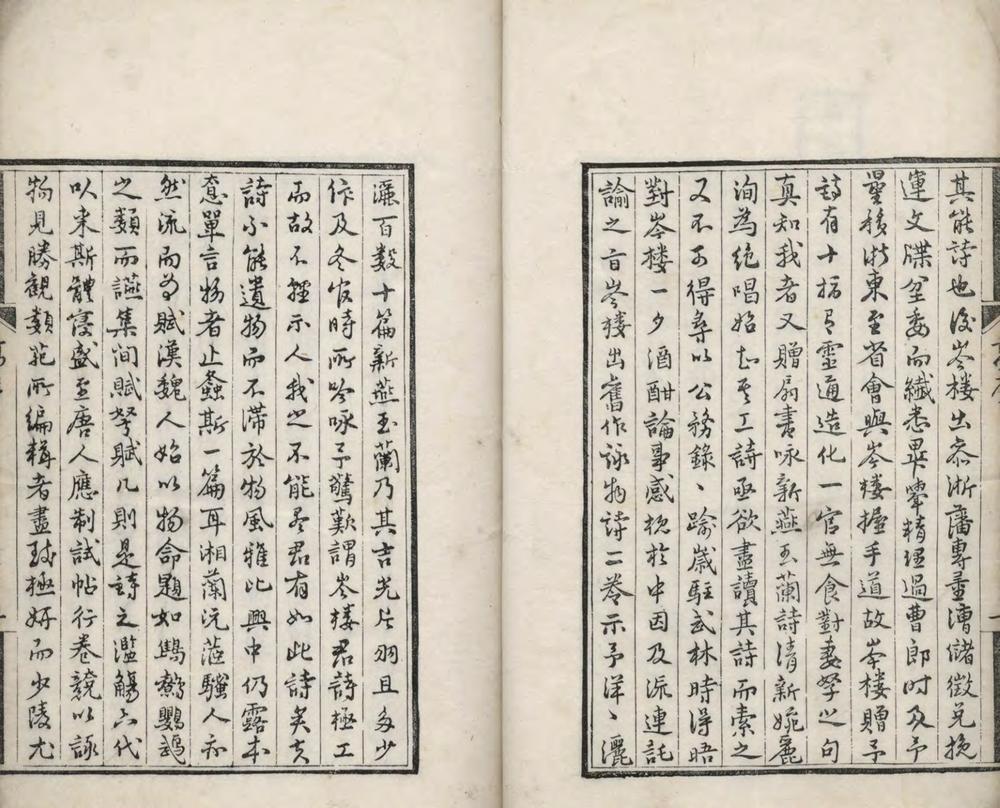 其能詩也後岑楼出叅淅藩專董漕儲徵兌挽
運文牒坌委而纎悉畢挈精理過曹郎时及予
量移淅東至省會與岑楼握手道故岑楼贈予
詩有十指有靈通造化一官無食對妻孥之句
真知我者又贈扇書咏新燕玉蘭詩清新婉麗
洵為絶唱始知其工詩亟欲盡讀其詩而索之
又不可得尋以公務錄、踰歲駐武林時得晤
對岑楼一夕酒酣論事感於中因及流連託
諭之旨岑楼出舊作詠物詩二卷示予洋、灑
灑百數十篇新燕玉蘭乃其吉光片羽且多少
作及冬官時所吟咏予驚歎謂岑楼君詩極工
而故不輕示人我之不能盡君有如此詩矣夫
詩不能遺物而不滯於物風雅比興中仍露本
意單言物者止螽斯一篇耳湘蘭沅茝騷人亦
然流而為賦漢魏人始以物命題如鷦鷯鸚鵡
之類而讌集间賦琴賦几則是詩之濫觴六代
以来斯體寖盛至唐人應制試帖行卷競以詠
物見勝觀類苑所編輯者盡致極妍而少陵尤